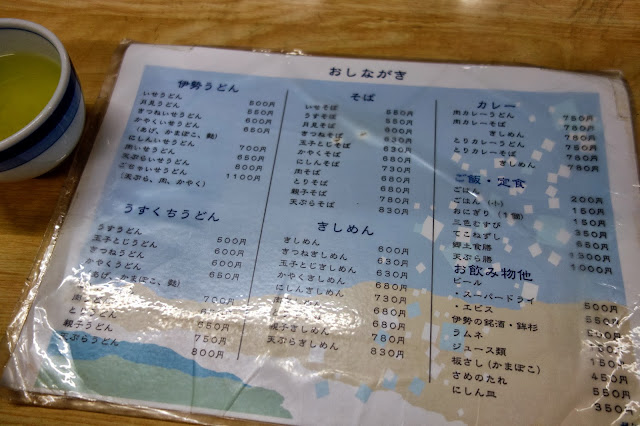 おしながき
伊勢うどん
いせうどん 500円
月見うどん 550円
きつねいせうどん 600円
かやくいせうどん 650円
(あげ、かまぼこ、麩)
にしんいせうどん 700円
肉いせうどん 650円
天ぷらいせうどん 800円
ごちゃいせうどん 1100円
(天ぷら、肉、かやく)
うすくちうどん
うすうどん
玉子とじうどん 600円
きつねうどん 600円
かやくうどん 650円
(あげ、かまぼこ、麩)
700円
肉うどん
とりうどん
親子うどん 750円
天ぷらうどん 800円
そば
いせそば
うすそば 550円
月見そば 580円
きつねそば 630円
玉子とじそば 630円
かやくそば 680円
にしんそば 730円
肉そば 680円
とりそば 680円
親子そば 780円
天ぷらそば 830円
きしめん
きしめん
きつねきしめん 630円
玉子とじきしめん 630円
かやくきしめん 680円
にしんきしめん 730円
きしめん 680円
きしめん 680円
親子きしめん 780円
天ぷらきしめん 830円
カレー
肉カレーうどん 780円
肉カレーそば 780円
きしめん 780円
とりカレーうどん 780円
とりカレーそば 780円
きしめん 780円
ご飯・定食
ごはん 200円
ごはん(小) 150円
おにぎり(1個)
三色むすび 350円
てこねずし
郷土食膳
天ぷら膳
お飲み物他
ビール
・スーパードライ 500円
・エビス 550円
伊勢の銘酒・鉾杉
ラムネ
ジュース類 150円
板さし(かまぼこ) 450円
さめのたれ 550円
にしん皿 350円